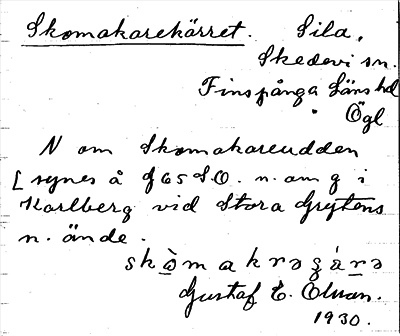 Skomakarekärret. Sila,
Skedevi sn.
Finspånga länshd
Ögl
N om Skomakareudden
[synes å G 65 S.O. n. om g i
Karlberg vid Stora Grytens
n. ände.
skò̤makrəʒ́á̤rə
Gustaf E. Elman.
1930.